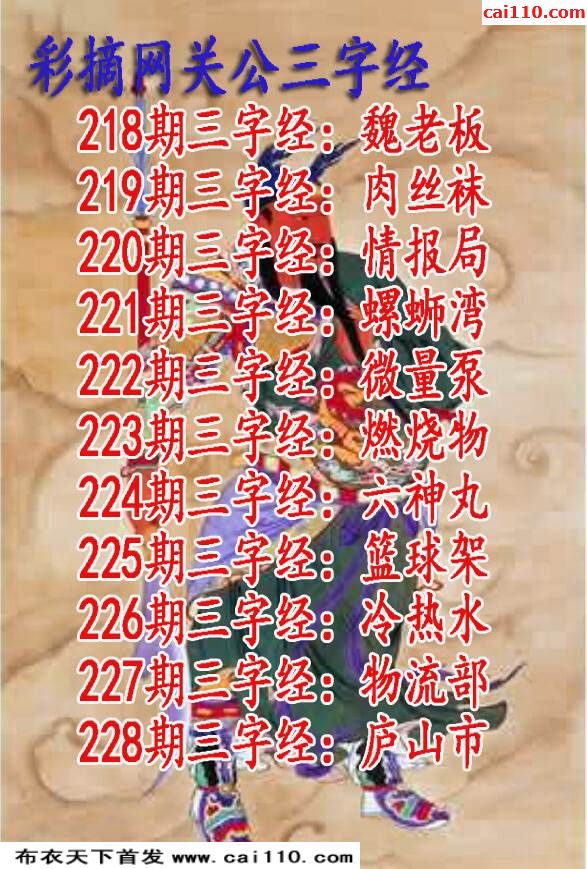 cai110.com
彩摘网关公三字经
218期三字经：魏老板
219期三字经：肉丝袜
220期三字经：情报局
221期三字经：螺蛳湾
222期三字经：微量泵
223期三字经：燃烧物
224期三字经：六神丸
225期三字经：篮球架
226期三字经：冷热水
227期三字经：物流部
228期三字经：庐山市
布衣天下首发 www.cai110.com